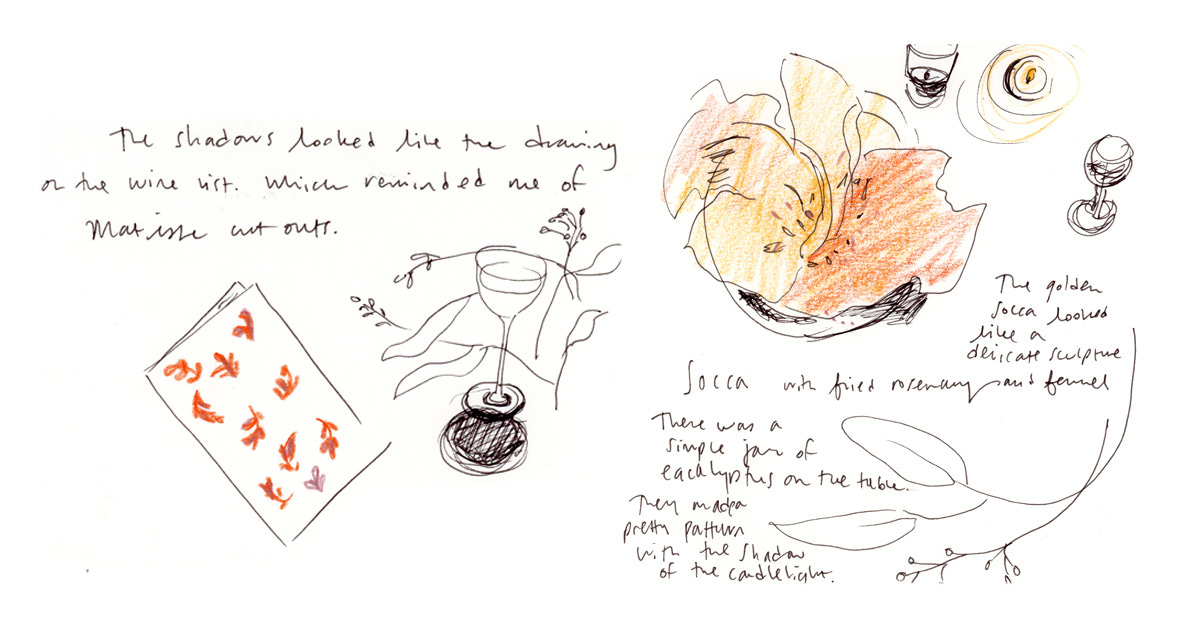 The shadows looked like the drawing
on the wine list. Which reminded me of
Matisse cut outs.
The golden
socca looked
like a
delicate sculpture
Socca with fried rosemary and fennel
There was a
simple jar of
eacalyptus on the table.
They made a
pretty pattern
with the shadow
of the candlelight.